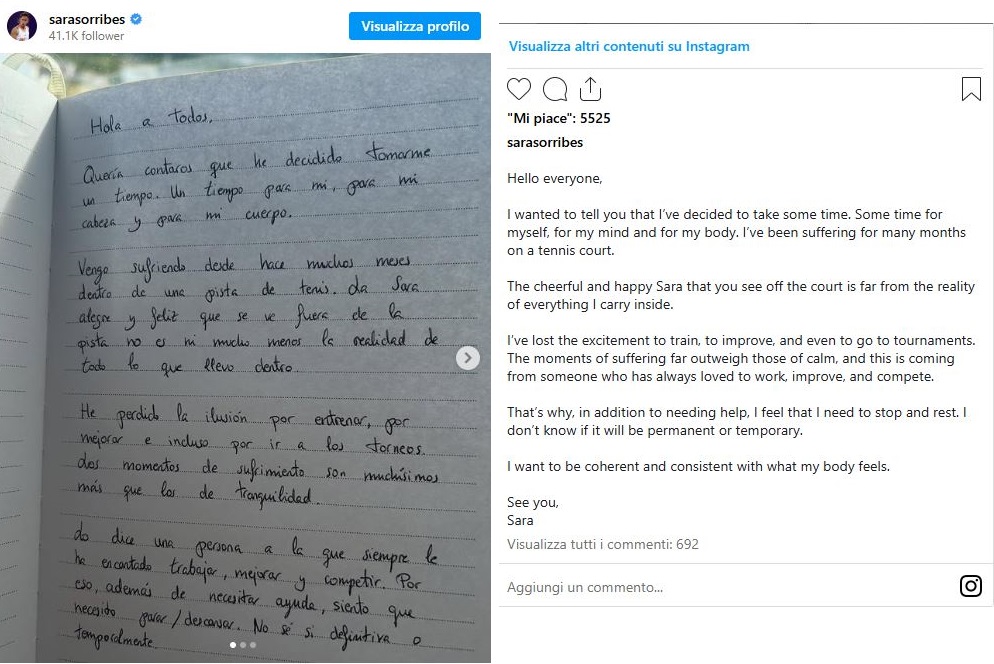 sarasorribes
41.1K follower
Visualizza profilo
Hola a todos,
Quería contaros que he decidido tomarme
un tiempo. Un tiempo para mi, para mi
cabeza y para mi cuerpo.
Vengo sufriendo desde hace muchos meses
dentro de una pista de tenis. La Sara
alegre y feliz que se ve fuera de la
pista no es ni mucho menos la realidad de
todo lo que llevo dentro.
He perdido la ilusión por entrenar, por
mejorar e incluso por ir a los torneos.
Los momentos de sufrimiento son muchísimos
más que los de tranquilidad.
Lo dice una persona a la que siempre le
ha encantado trabajar, mejorar y competir. Por
eso, además de necesitar ayuda, siento que
necesito parar/descansar. No sé si definitiva o
temporalmente.
Visualizza altri contenuti su Instagram
"Mi piace": 5525
sarasorribes
Hello everyone,
I wanted to tell you that I've decided to take some time. Some time for
myself, for my mind and for my body. I've been suffering for many months
on a tennis court.
The cheerful and happy Sara that you see off the court is far from the reality
of everything I carry inside.
I've lost the excitement to train, to improve, and even to go to tournaments.
The moments of suffering far outweigh those of calm, and this is coming
from someone who has always loved to work, improve, and compete.
That's why, in addition to needing help, I feel that I need to stop and rest. I
don't know if it will be permanent or temporary.
I want to be coherent and consistent with what my body feels.
See you,
Sara
Visualizza tutti i commenti: 692
Aggiungi un commento...